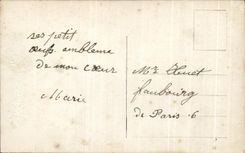 ses petit
œufs embleme
de mon cœur
Marie
Mr Huet
faubourg
de Paris 6